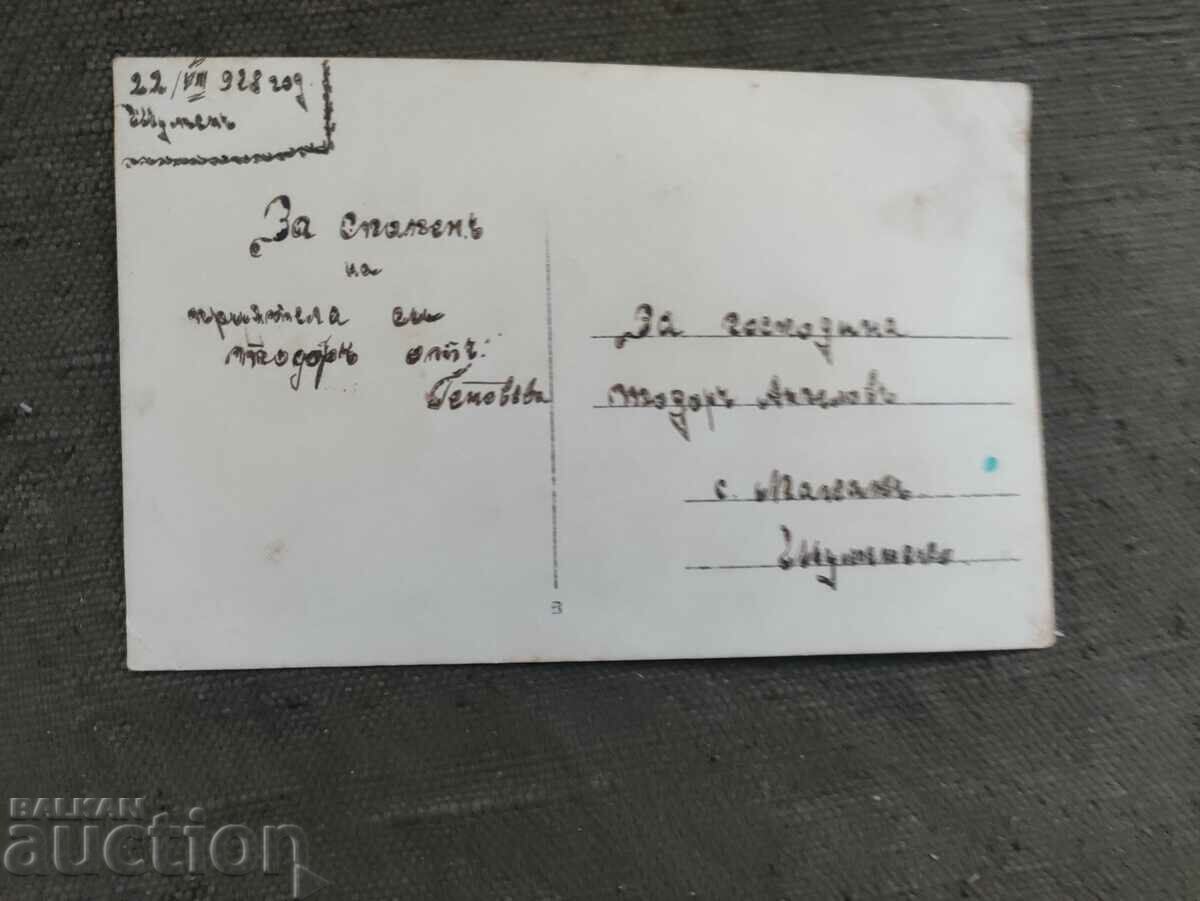 22/VIII 928 год.
Шуменъ
За спомен.
на
приятеля си
Тодоръ отъ:
За господина
Тодоръ Ангеловъ
с.
Шуменско
B
BALKAN
auction